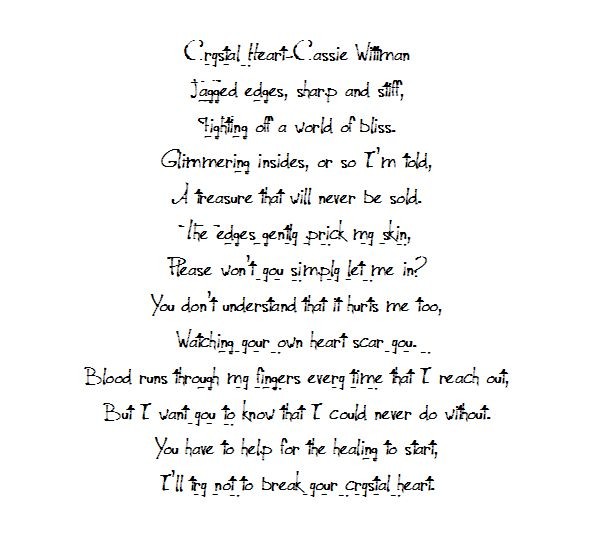 Crystal Heart-Cassie Wittman
Jagged edges, sharp and stiff,
Fighting off a world of bliss.
Glimmering insides, or so I'm told,
A treasure that will never be sold.
The edges gently prick my skin,
Please won't you simply let me in?
You don't understand that it hurts me too,
Watching your own heart scar you.
Blood runs through my fingers every time that I reach out,
But I want you to know that I could never do without.
You have to help for the healing to start,
I'll try not to break your crystal heart.